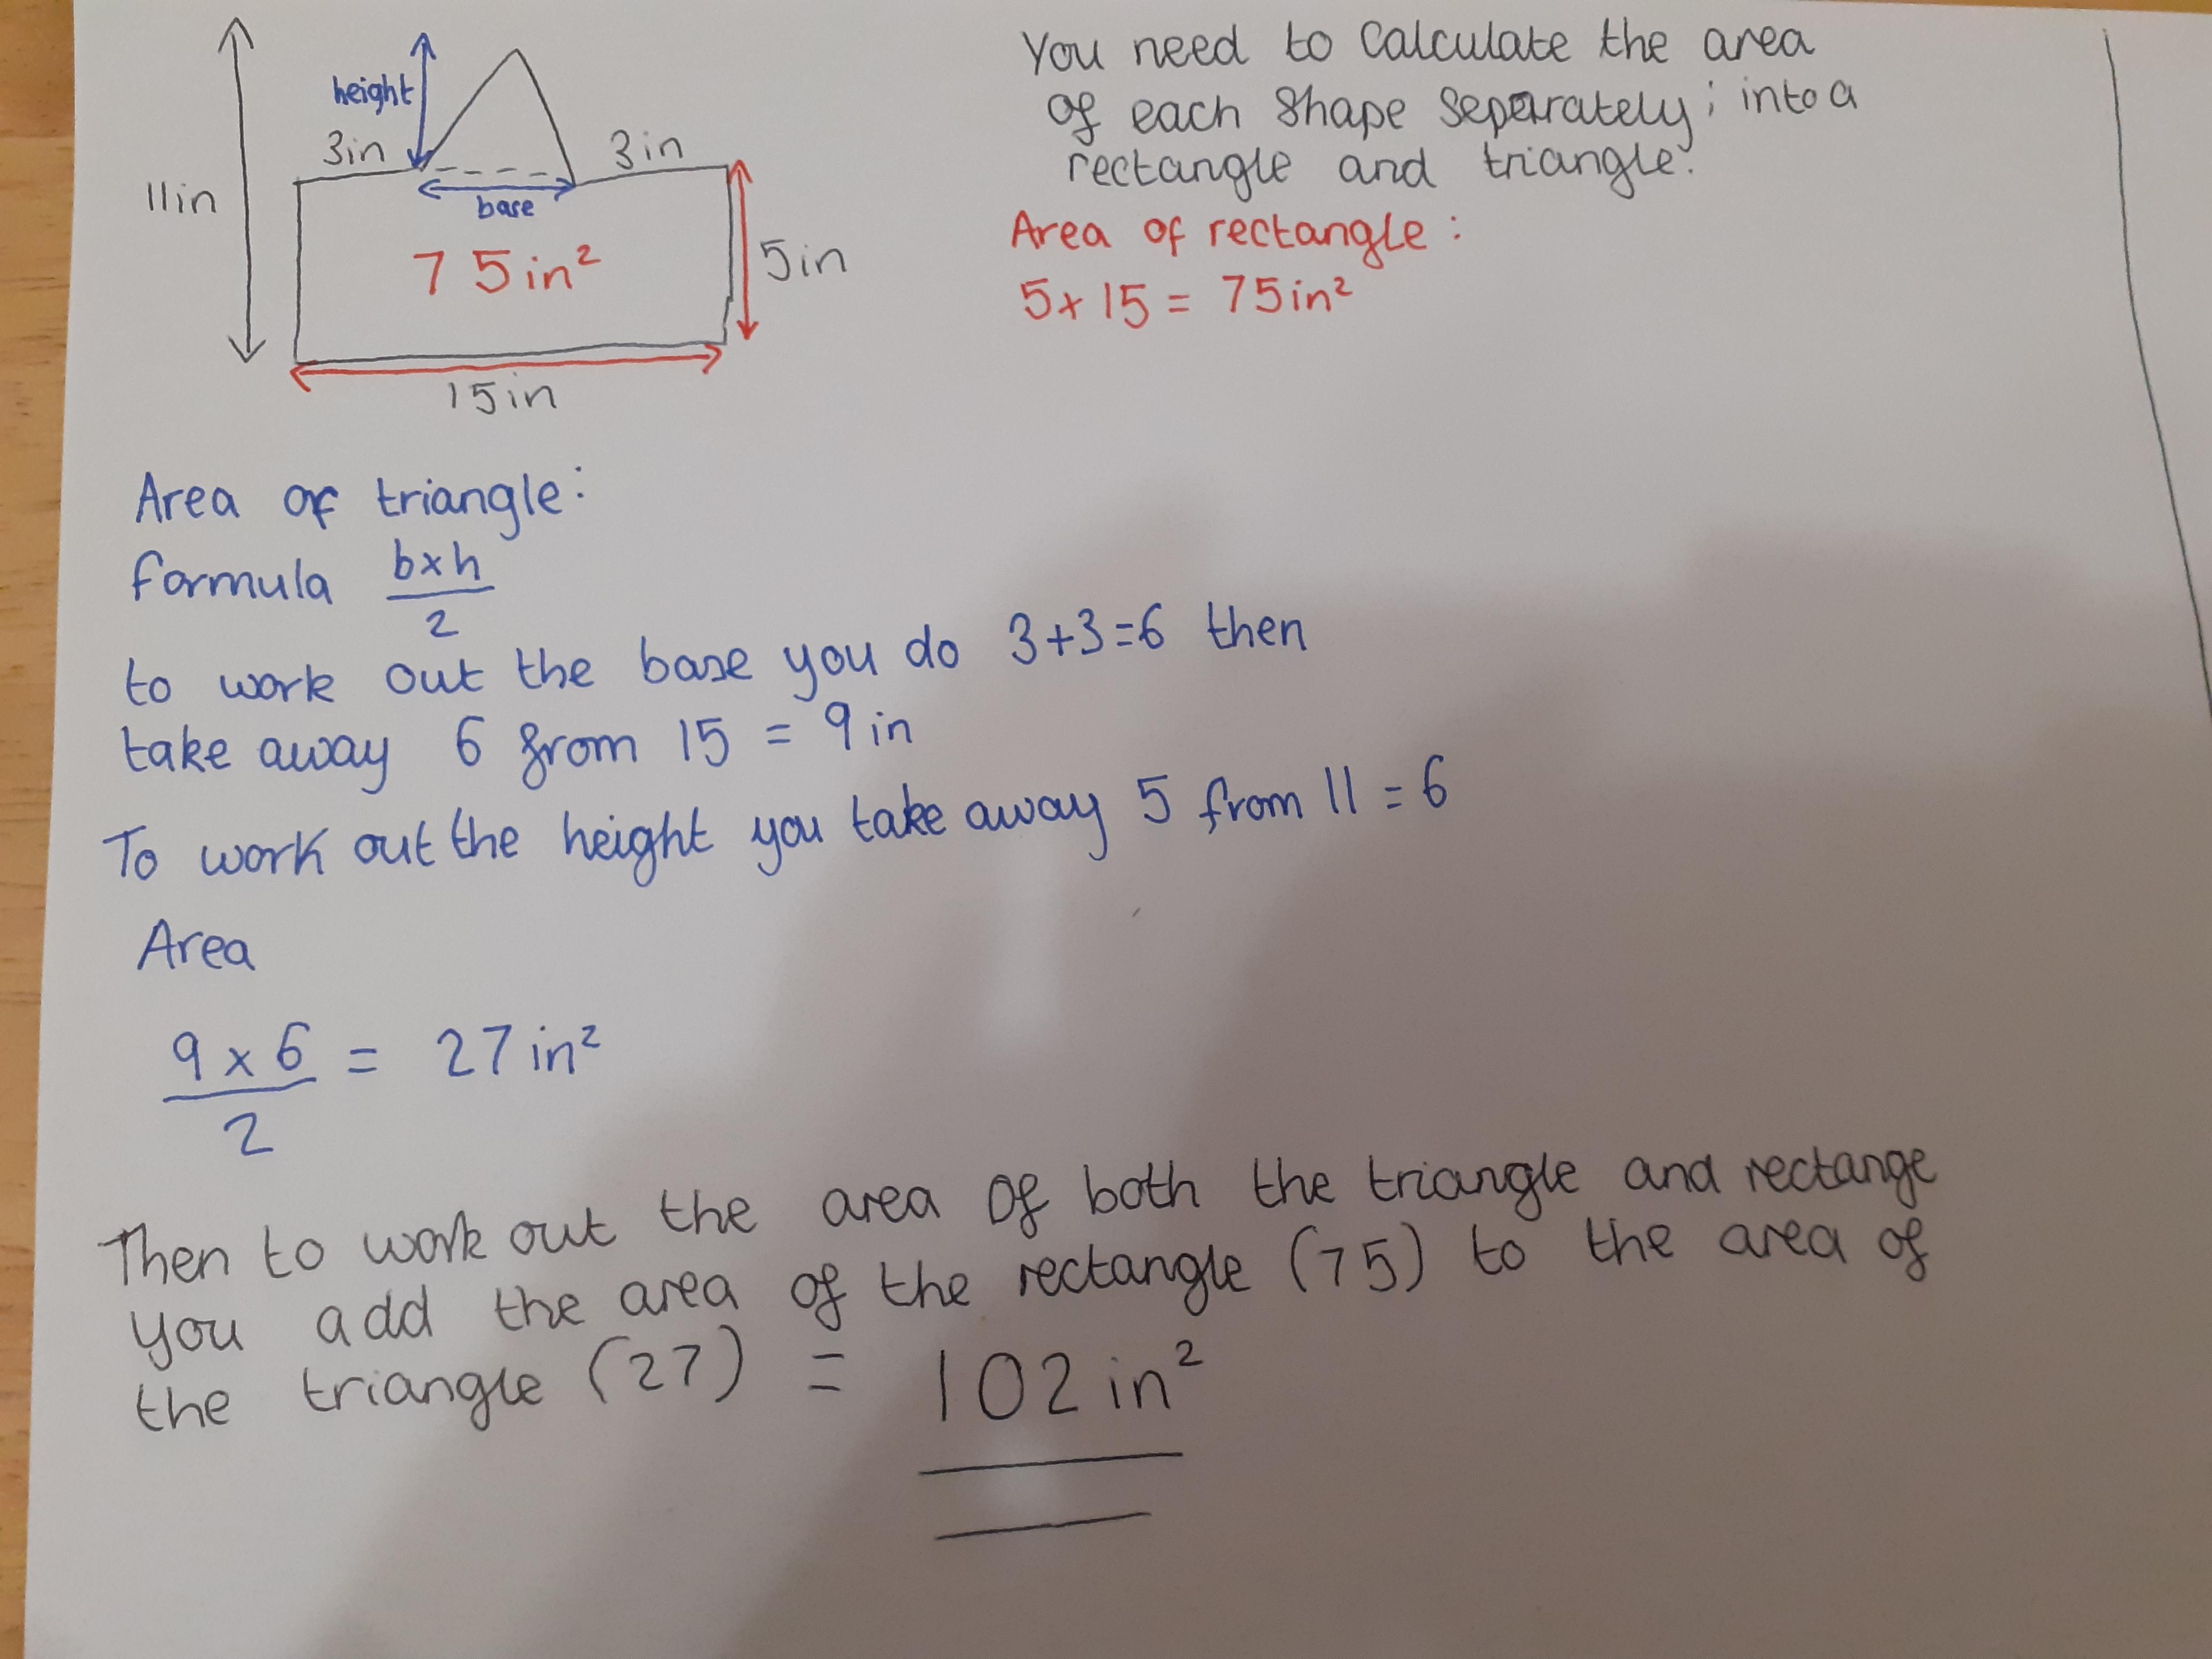 height
3in
3in
11in
base
75in²
5in
15in
You need to calculate the area
of each shape separately; into a
rectangle and triangle.
Area of rectangle:
5x15 = 75in²
Area of triangle:
formula bxh
2
to work out the base you do 3+3=6 then
take away 6 from 15 = 9in
To work out the height you take away 5 from 11 = 6
Area
9 x 6 = 27in²
2
Then to work out the area of both the triangle and rectange
you add the area of the rectangle (75) to the area of
the triangle (27) = 102in²